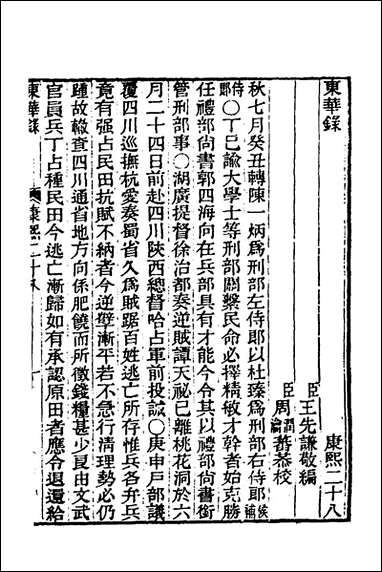 東華錄　康熙二十八
臣王先謙敬編
臣周潤瀹蕃恭校
秋七月癸丑轉陳一炳爲刑部左侍郎以杜臻爲刑部右侍郎候補
侍郎〇丁巳諭大學士等刑部關繫民命必擇精敏才幹者始克勝
任禮部尙書郭四海向在兵部具有才能今令其以禮部尙書銜
管刑部事〇湖廣提督徐治都奏逆賊譚天祕已離桃花洞於六
月二十四日前赴四川陝西總督哈占軍前投誠〇庚申戶部議
覆四川巡撫杭愛奏蜀省久爲賊踞百姓逃亡所存惟兵各弁兵
竟有强占民田抗賦不納者今逆孽漸平若不急行清理勢必仍
踵故轍查四川通省地方向係肥饒而所徵錢糧甚少是由文武
官員兵丁占種民田今逃亡漸歸如有承認原田者應令退還給
東華錄　康熙二十八　一